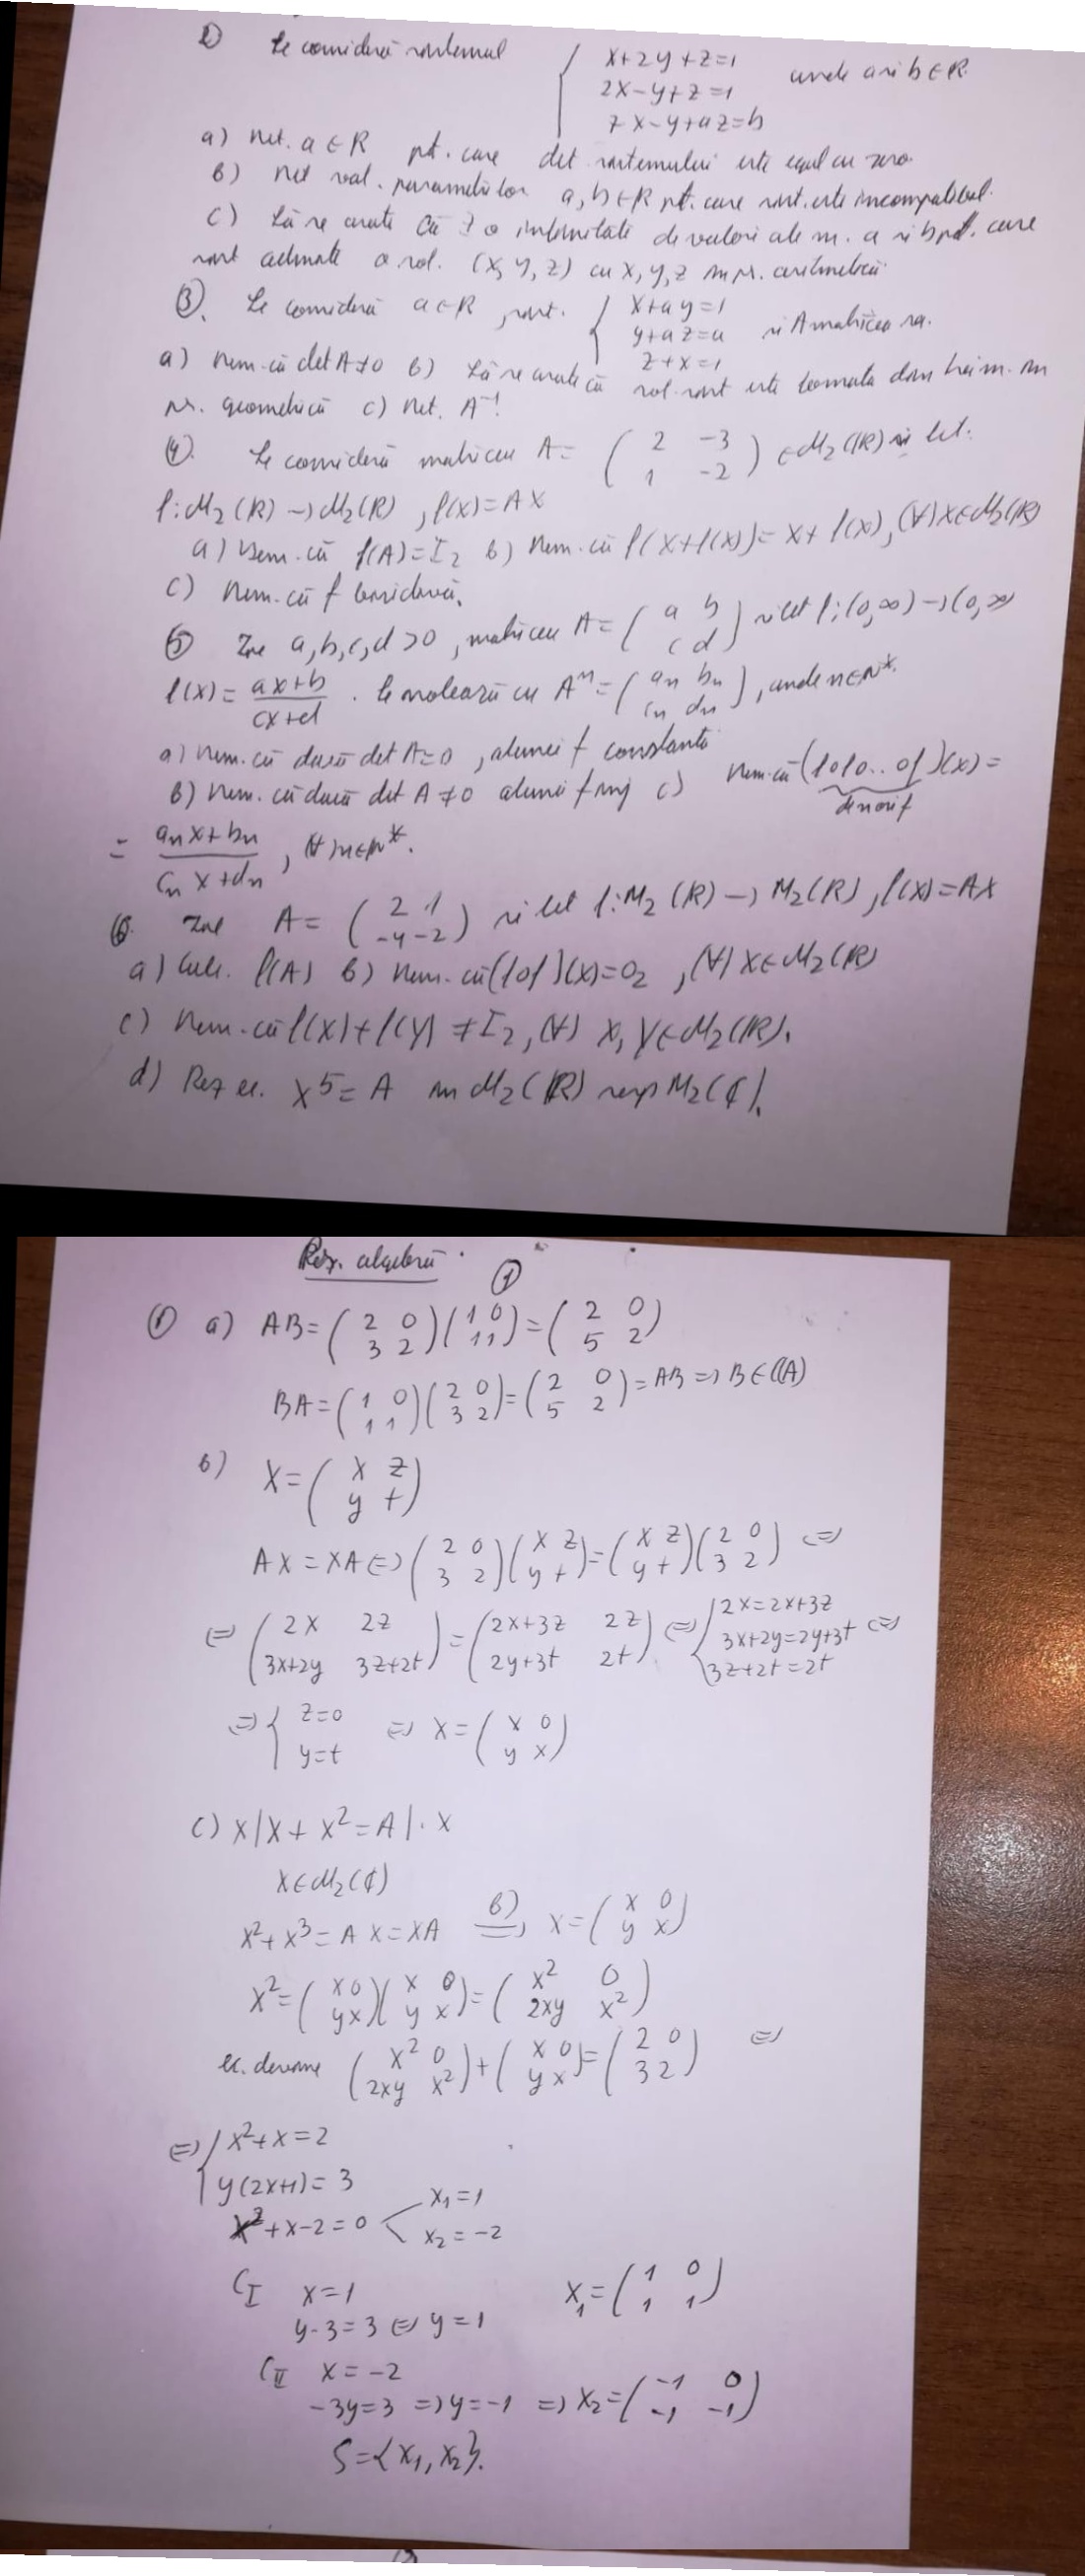 2) Se consideră sistemul { x+2y+z=1
2x-y+z=1
7x-y+az=b unde a și b∈R.
a) Det. a∈R pt. care det sistemului este egal cu zero.
b) Det val. parametrilor a, b∈R pt. care sist. este incompatibil.
c) Să se arate că ∃ o infinitate de valori ale nr. a și b pt. care
sist admite o sol. (x, y, z) cu x, y, z în pr. aritmetică
3). Se consideră a∈R, sist. { x+ay=1
y+az=a
z+x=1 și A matricea sa.
a) Dem. că det A≠0 b) Să se arate că sol. sist este formată din trei nr. în
pr. geometrică c) Det. A⁻¹
4). Se consideră matricea A= ( 2 -3
1 -2 ) ∈M₂(R) și fct.
f:M₂(R)→M₂(R), f(X)=AX
a) Dem. că f(A)=I₂ b) Dem. că f(X+f(X))=X+f(X), (∀)X∈M₂(R)
c) Dem. că f bijectivă.
5) Fie a, b, c, d >0, matricea A= ( a b
c d ) și fct f:(0,∞)→(0,∞)
f(x)= (ax+b)/(cx+d). Se notează cu Aⁿ= ( an bn
cn dn ), unde n∈N*.
a) Dem. că dacă det A=0, atunci f constantă
b) Dem. că dacă det A≠0 atunci f inj c) Dem. că (fofo..of)(x)=
de n ori f
= (an x+bn)/(cn x+dn), ∀ n∈N*.
6. Fie A= ( 2 1
-4 -2 ) și fct f:M₂(R)→M₂(R), f(X)=AX
a) Calc. f(A) b) Dem. că (fof)(X)=O₂, (∀)X∈M₂(R)
c) Dem. că f(X)+f(Y)≠I₂, (∀) X, Y∈M₂(R).
d) Rez ec. X⁵=A în M₂(R) resp M₂(C).
Rez. algebră.
①
① a) AB= ( 2 0
3 2 ) ( 1 0
1 1 ) = ( 2 0
5 2 )
BA= ( 1 0
1 1 ) ( 2 0
3 2 ) = ( 2 0
5 2 ) =AB ⇒ B∈C(A)
b) X= ( x z
y t )
AX=XA ⇔ ( 2 0
3 2 ) ( x z
y t ) = ( x z
y t ) ( 2 0
3 2 ) ⇔
⇔ ( 2x 2z
3x+2y 3z+2t ) = ( 2x+3z 2z
2y+3t 2t ). ⇔ { 2x=2x+3z
3x+2y=2y+3t
3z+2t=2t ⇔
⇔ { z=0
y=t ⇔ X= ( x 0
y x )
c) X|X+X²=A|·X
X∈M₂(C)
X²+X³=AX=XA b)⇒ X= ( x 0
y x )
X²= ( x 0
y x ) ( x 0
y x ) = ( x² 0
2xy x² )
ec. devine ( x² 0
2xy x² ) + ( x 0
y x ) = ( 2 0
3 2 ) ⇔
⇔ { x²+x=2
y(2x+1)=3
x²+x-2=0 < x₁=1
x₂=-2
C_I x=1 X₁= ( 1 0
1 1 )
y·3=3 ⇔ y=1
C_II x=-2
-3y=3 ⇒ y=-1 ⇒ X₂= ( -1 0
-1 -1 )
S={X₁, X₂}.